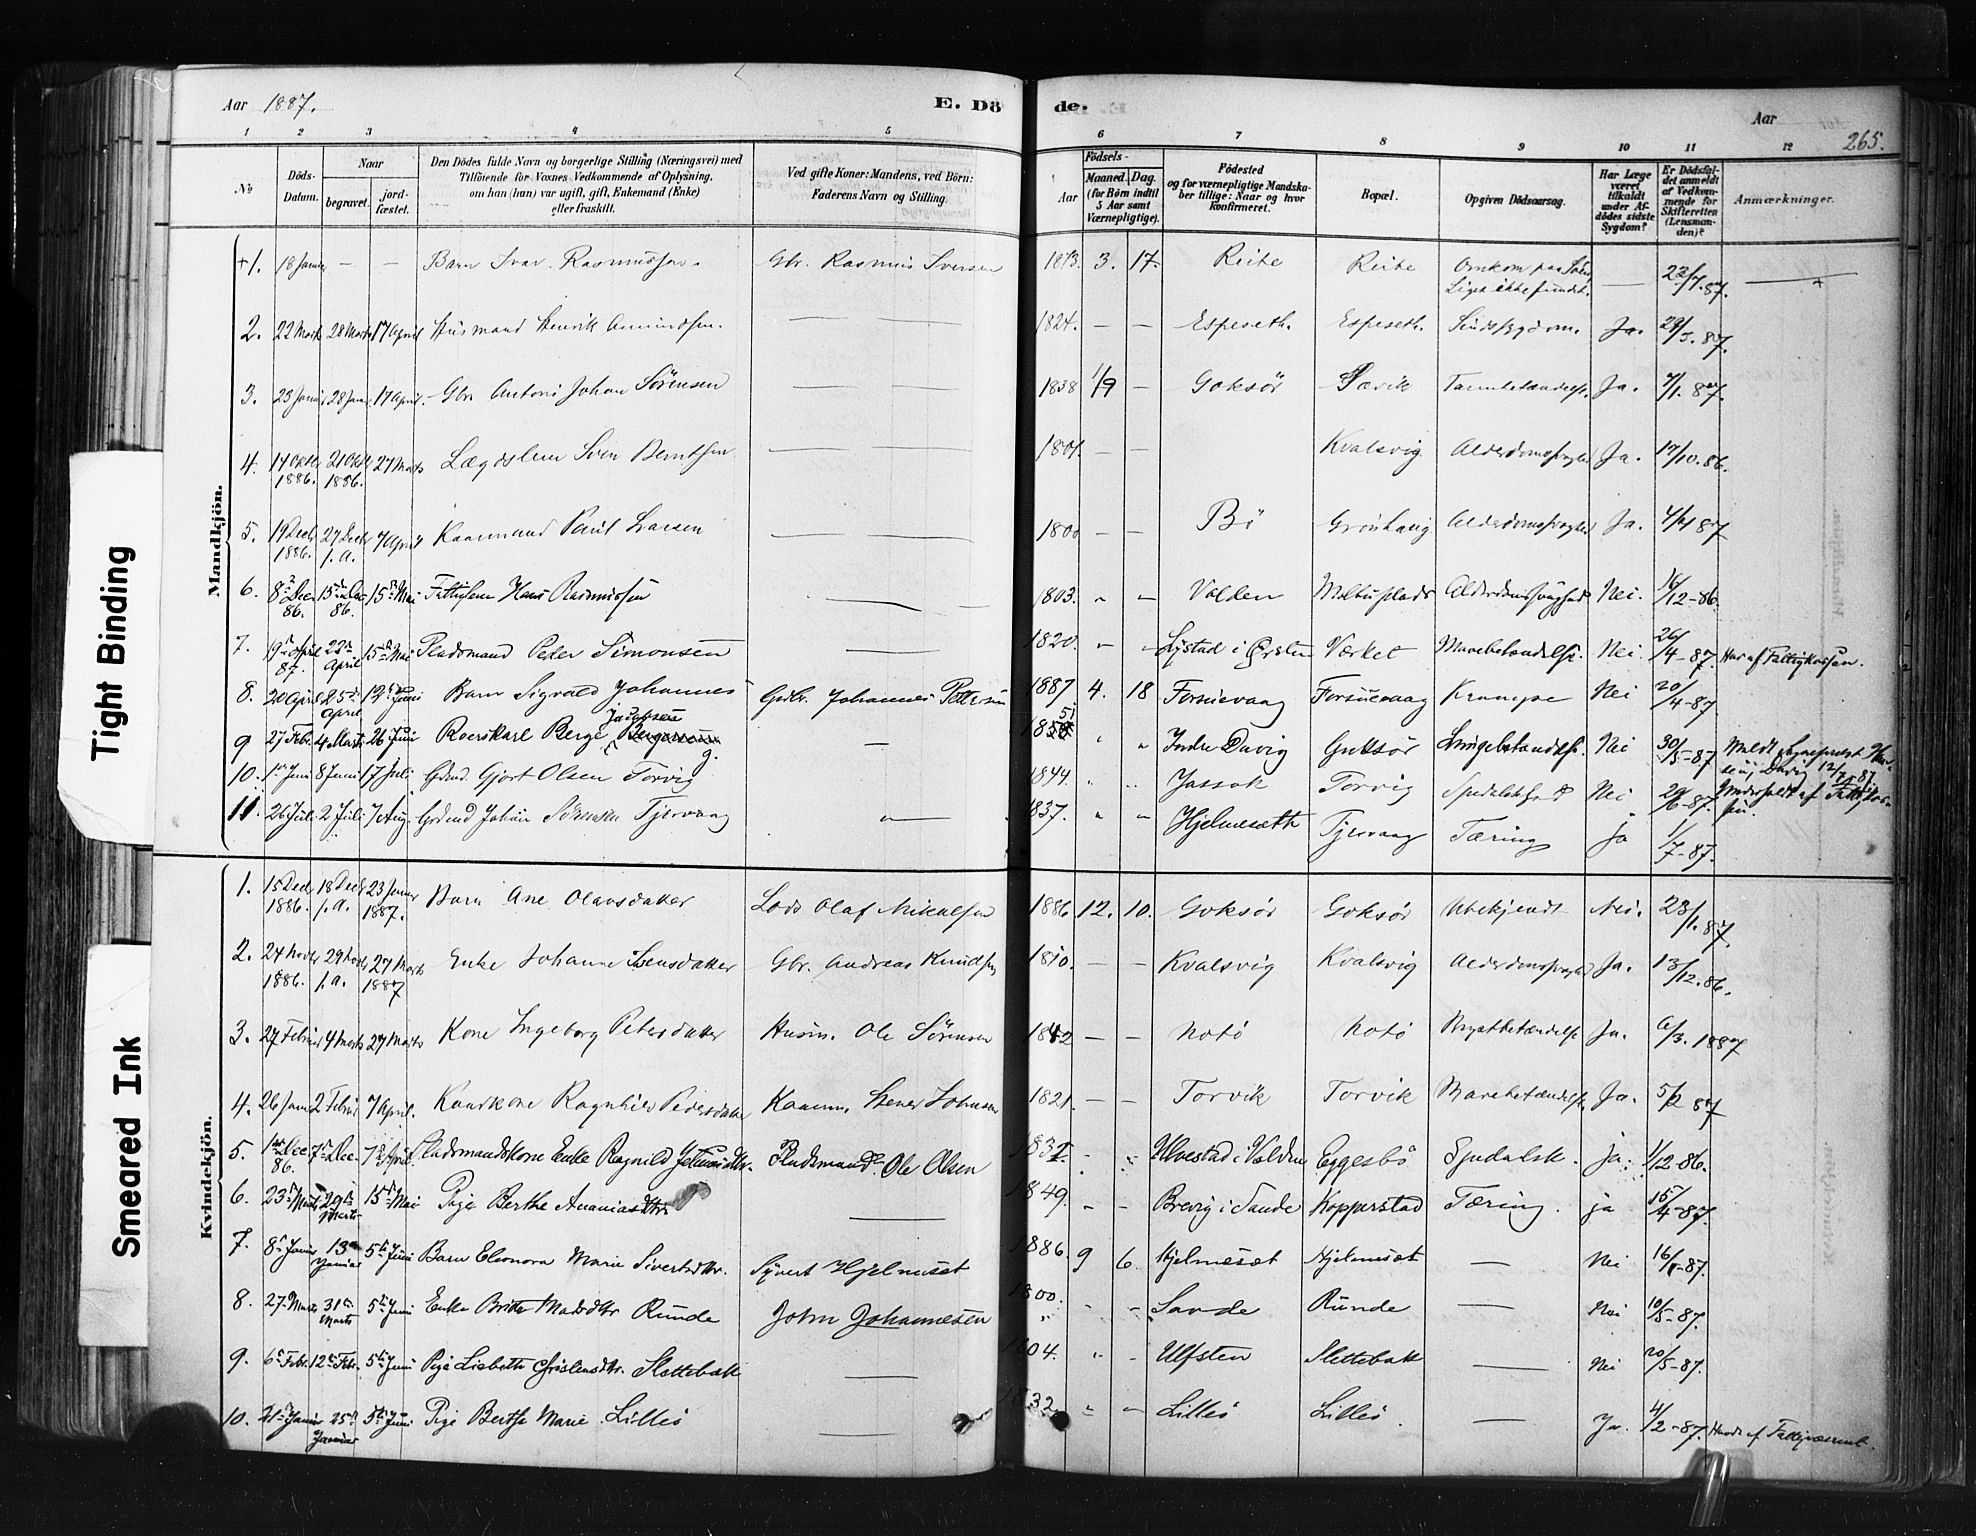 Aar 1887.
E. Dö
de.
Aar
265.
1 2 3 4 5 6 7 8 9 10 11 12
No
Döds-Datum.
Naar
begravet.
jord-fæstet.
Den Dödes fulde Navn og borgerlige Stilling (Næringsvei) med
Tilföiende for Voxnes Vedkommende af Oplysning,
om han (hun) var ugift, gift, Enkemand (Enke)
eller fraskilt.
Ved gifte Koner: Mandens, ved Börn:
Faderens Navn og Stilling.
Födsels-
Aar
Maaned. Dag.
(for Börn indtil
5 Aar samt
Værnepligtige).
Födested
og for værnepligtige Mandska-
ber tillige: Naar og hvor
konfirmeret.
Bopæl.
Opgiven Dödsaarsag.
Har Læge
været
tilkaldt
under Af-
dödes sidste
Sygdom?
Er Dödsfal-
det anmeldt
af Vedkom-
mende for
Skifteretten
(Lensman-
den)?
Anmærkninger.
Mandkjön.
+1. 18 Januar — — Barn Ivar Rasmussen. Gbr. Rasmus Iversen 1873. 3. 17. Reite Reite Omkom paa Søen, Liget ikke fundet. — 22/7. 87. —
2. 22 Marts 28 Marts 17 April Husmand Henrik Amundsen. — 1824. — — Espeseth. Espeseth. Sindssygdom. Ja. 29/3. 87.
3. 23 Januar 28 Januar 17 April Gbr. Antoni Johan Sörensen — 1838 1/9 — Goksör Sævik Tarmbetændelse. Ja. 7/1. 87.
4. 14 Oktbr 1886. 21 Oktbr 1886. 27 Marts Lægdslem Sven Berntsen — 1801. — — Kvalsvig Alderdomssvaghed Ja. 17/10. 86.
5. 19 Decbr 1886. 27 Decbr s.a. 7 April Kaarmand Paul Larsen — 1800 — — Bö Grönhaug Alderdomssvaghed Ja. 4/1 87
6. 8de Dec 86. 15de Dec 86. 15de Mai Fattiglem Hans Rasmussen — 1803. Volden Moltuplads Alderdomssvaghed Nei. 16/12-86.
7. 19de April 87. 22de April 15de Mai Pladsmand Peder Simonsen — 1820. Lystad i Ørsten Værket Mavebetændelse. Nei. 26/4-87. Har af Fattigkassen.
8. 20 April 25de April 12te Juni Barn Sigvald Johannes Gdbr. Johannes Pettersen 1887 4. 18 Forsnevaag Forsnevaag Krampe Nei 20/4-87
9 27 Febr. 4 Marts 26 Juni Roerskarl Berge Jacobsen — 1851 Indre Davig Goksör Lungebetændelse. Nei 30/5-87
10. 1ste Juni 8 Juni 17 Juli Gdmd. Gjert Olsen Torvig 1844. Jassok Torvig Spedalskhed Nei 20/6-87. Underholdt af Fattigkassen.
11. 26 Juli 2 Juli 7 Aug. Gdmd Johan Sörensen Tjervaag 1837. Hjelmeseth Tjervaag Tæring ja 1/7-87.
Kvindekjön.
1. 15 Decbr 1886. 18 Decbr s.a. 23 Januar 1887. Barn Ane Olavsdatter Lods Olaf Mikalsen 1886 12. 10. Goksör Goksör Ubekjendt Nei. 23/1. 87
2. 24 Novbr 1886. 29 Novbr s.a. 27 Marts 1887 Enke Johanne Iversdatter Gbr. Andreas Knudsen 1810. — — Kvalsvig Kvalsvig Alderdomssvaghed Ja. 13/12. 86.
3. 27 Februar 4 Marts 27 Marts Kone Ingeborg Petersdatter Husm. Ole Sörensen 1842 — — Notö Notö Brystbetændelse Ja. 6/3. 1887
4. 26 Januar 2 Februar 7 April. Kaarkone Ragnhild Pedersdatter Kaarm. Iver Johnsen 1821. — — Torvik Torvik Mavebetændelse Ja. 5/2 87
5. 1ste Dec 86. 7de Dec. 7de April Pladsmandskone Enke Ragnild Jetmundsdtr. Pladsmand Ole Olsen Ulvestad i Volden Eggesbö Spedalsk. ja. 1/12-86.
6. 23de Marts 29de Marts 15de Mai Pige Berthe Ananiasdtr. — 1849. Brevig i Sande Kopperstad Tæring. ja 15/4-87.
7. 8de Januar 13de Januar 5te Juni Barn Eleonora Marie Sivertsdtr. Syvert Hjelmeset 1886. 9 6. Hjelmesæt Hjelmesæt — Nei
8. 27 Marts 31te Marts 5te Juni Enke Brithe Madsdtr Runde John Johannesen 1800. Sande Runde — Nei 10/5-87.
9. 6te Febr. 12te Febr. 5te Juni Pige Lisbeth Slettebak — 1804. Ulfsten Slettebak — Nei 20/5-87.
10. 21de Januar 25de Januar 5te Juni Pige Berthe Marie Lillеö — 1832 Lilleö Lilleö. — Ja. 4/2-87.
Tight Binding
Smeared Ink